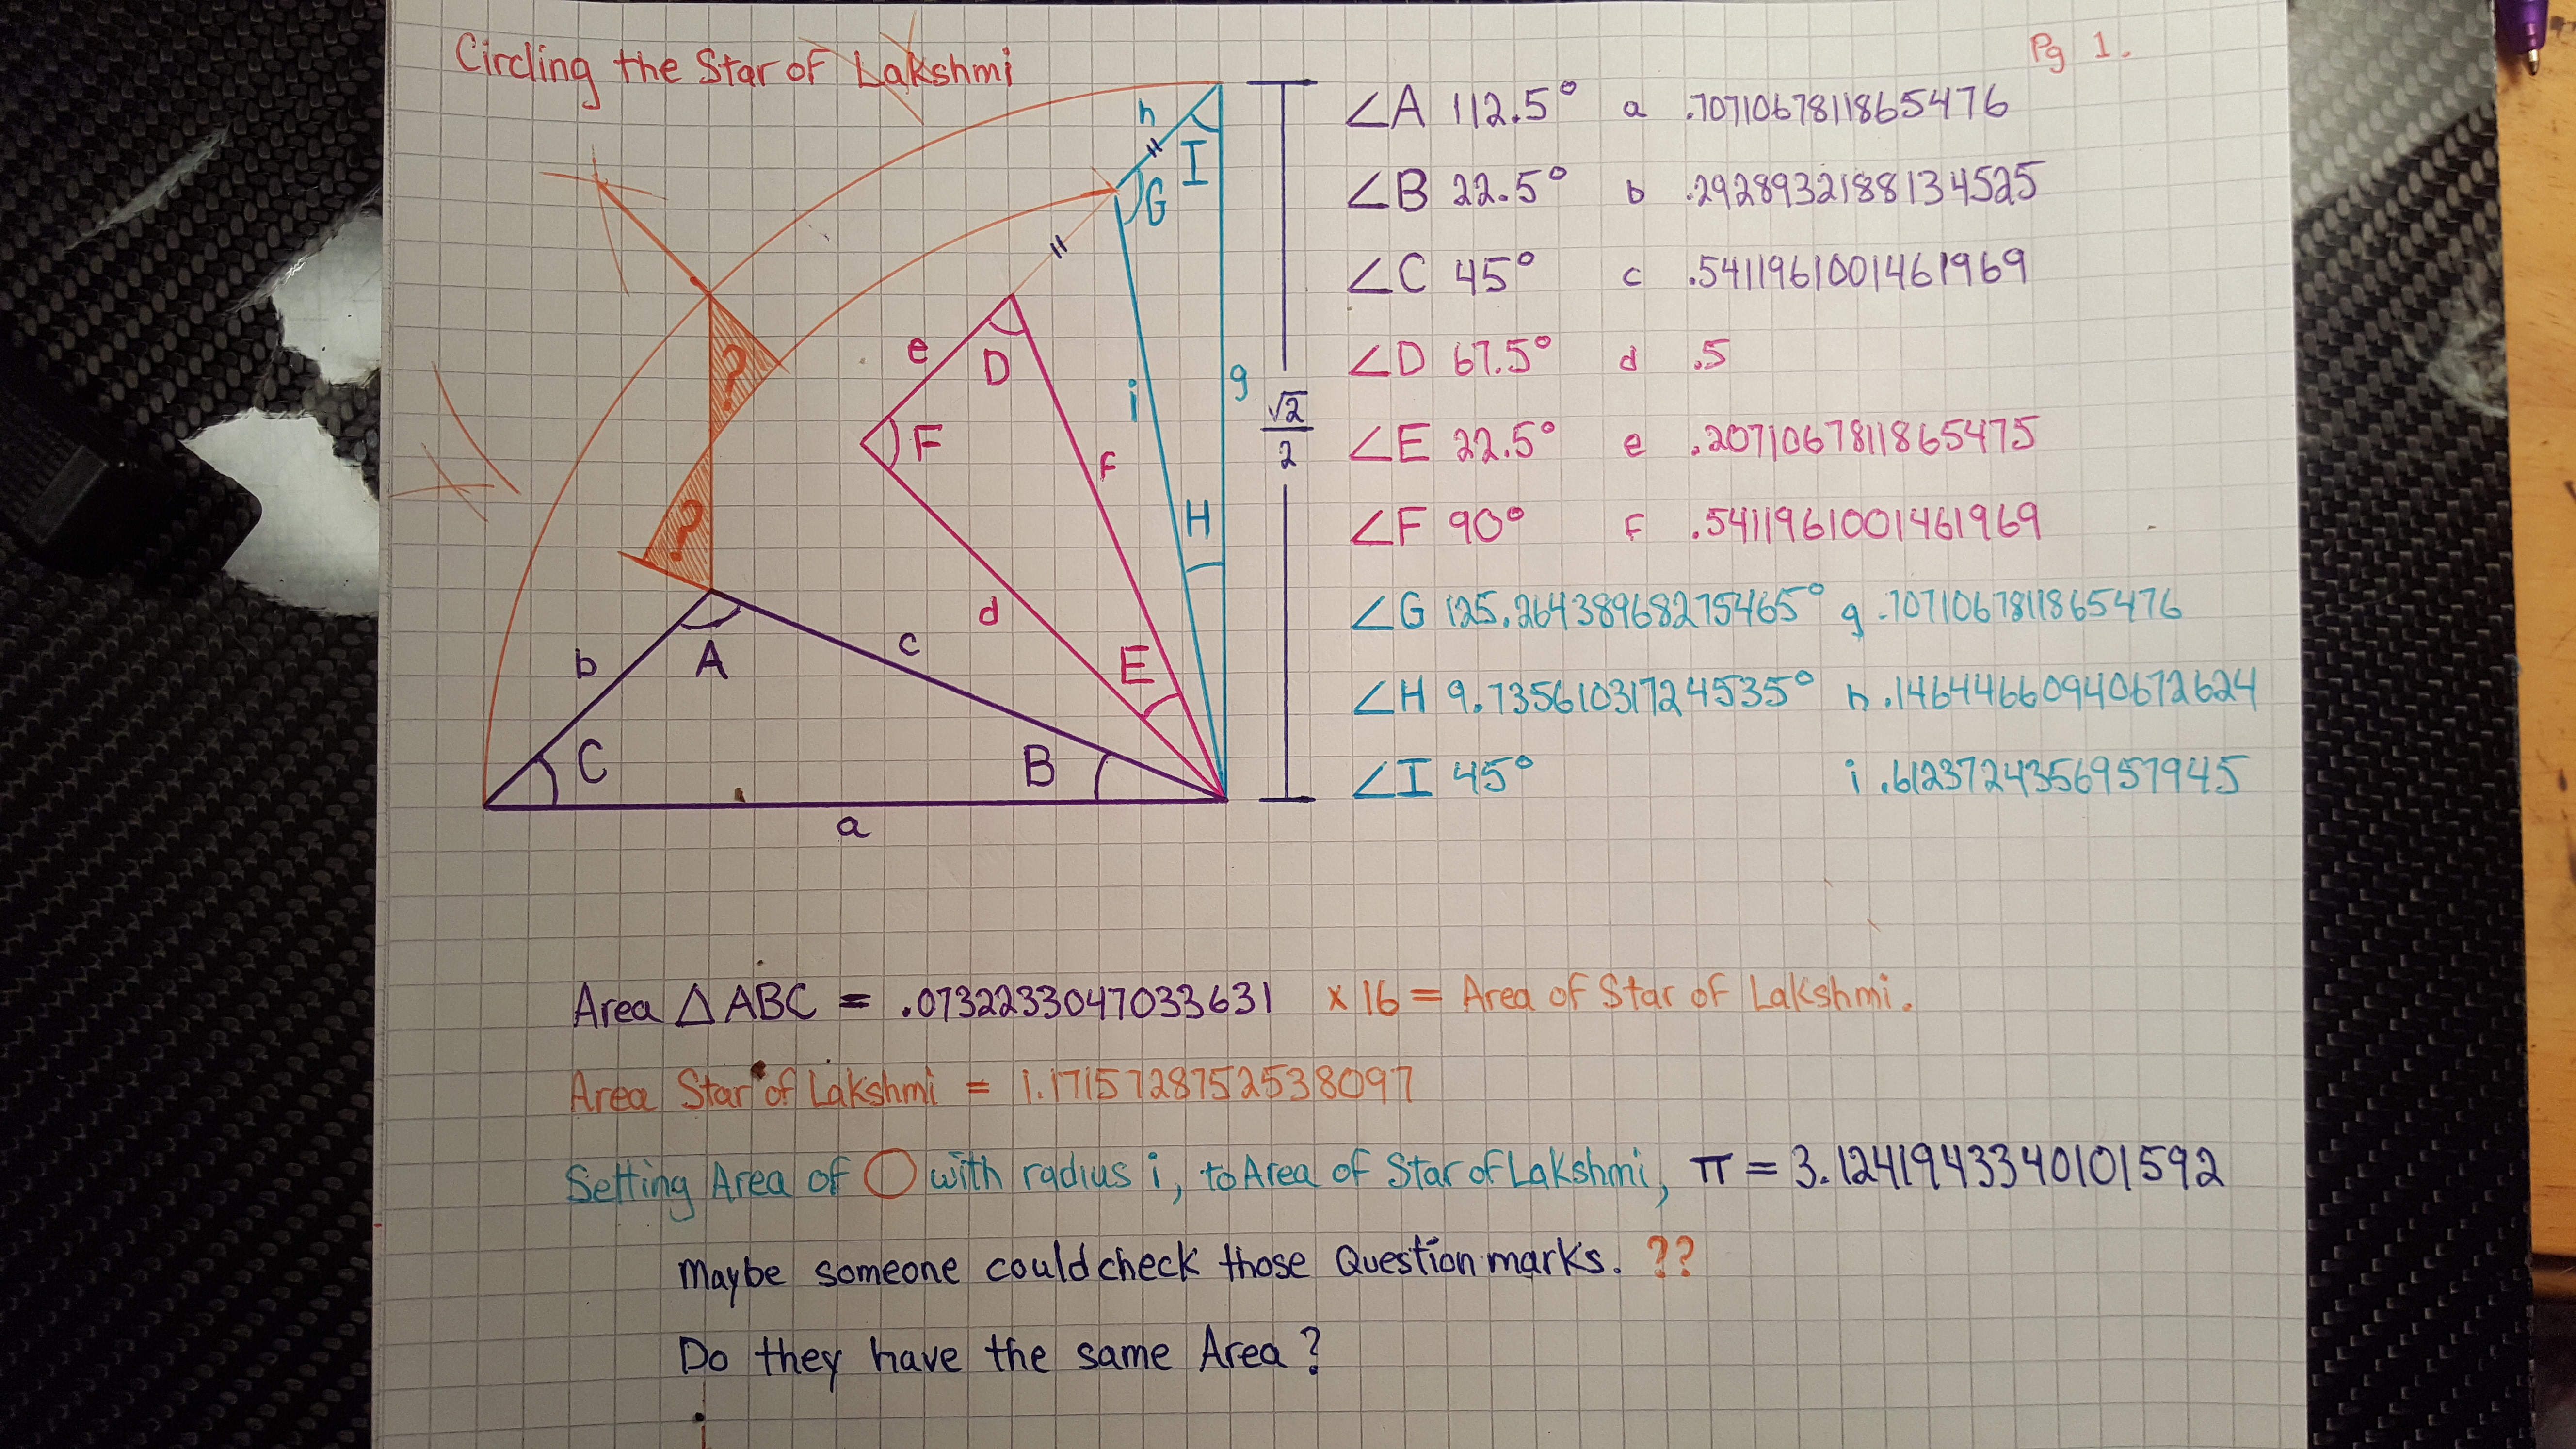 Circling the Star of Lakshmi
Pg 1.
∠A 112.5° a .7071067811865476
∠B 22.5° b .2928932188134525
∠C 45° c .5411961001461969
∠D 67.5° d .5
∠E 22.5° e .2071067811865475
∠F 90° f .5411961001461969
∠G 125.26438968275465° g .7071067811865476
∠H 9.73561031724535° h .14644660940672624
∠I 45° i .6123724356957945
h
I
G
g
√2
2
e
D
i
F
f
H
?
?
d
E
b
A
c
C
B
a
Area △ABC = .0732233047033631 x 16 = Area of Star of Lakshmi.
Area Star of Lakshmi = 1.1715728752538097
Setting Area of ◯ with radius i, to Area of Star of Lakshmi, π = 3.1241943340101592
Maybe someone could check those Question marks. ??
Do they have the same Area?